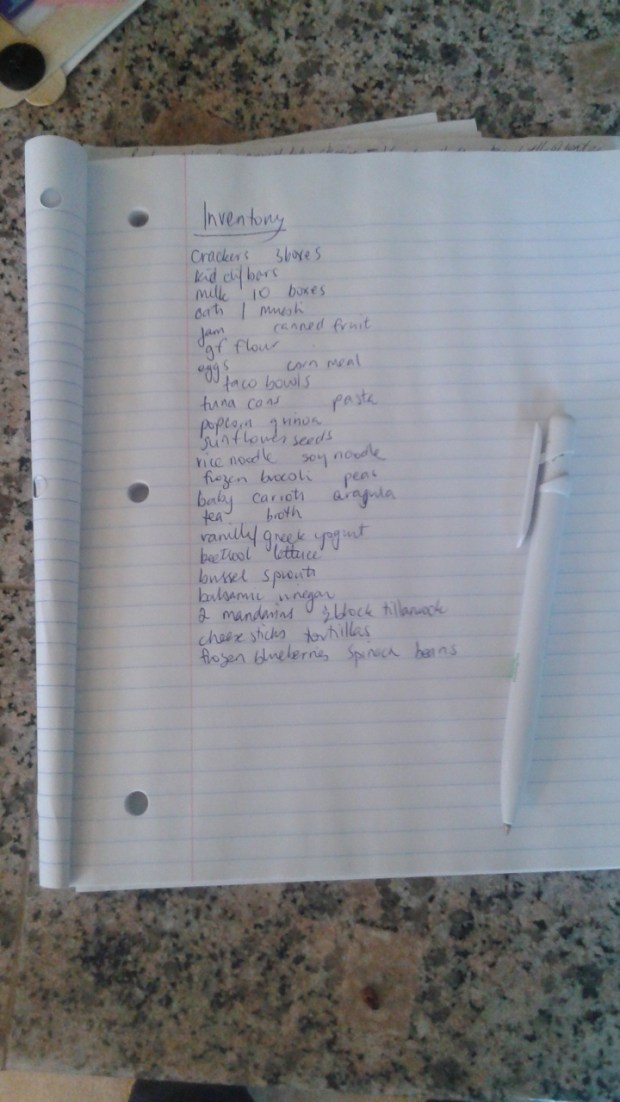 Inventory
Crackers 3boxes
kid clif bars
milk 10 boxes
oats / muesli
jam canned fruit
gf flour
eggs corn meal
taco bowls
tuna cans pasta
popcorn quinoa
sunflower seeds
rice noodle soy noodle
frozen brocoli peas
baby carrots aragula
tea broth
vanilla/greek yogurt
beetroot lettuce
brussel sprouts
balsamic vinegar
2 mandarins 3block tillamook
cheese sticks tortillas
frozen blueberries spinach beans